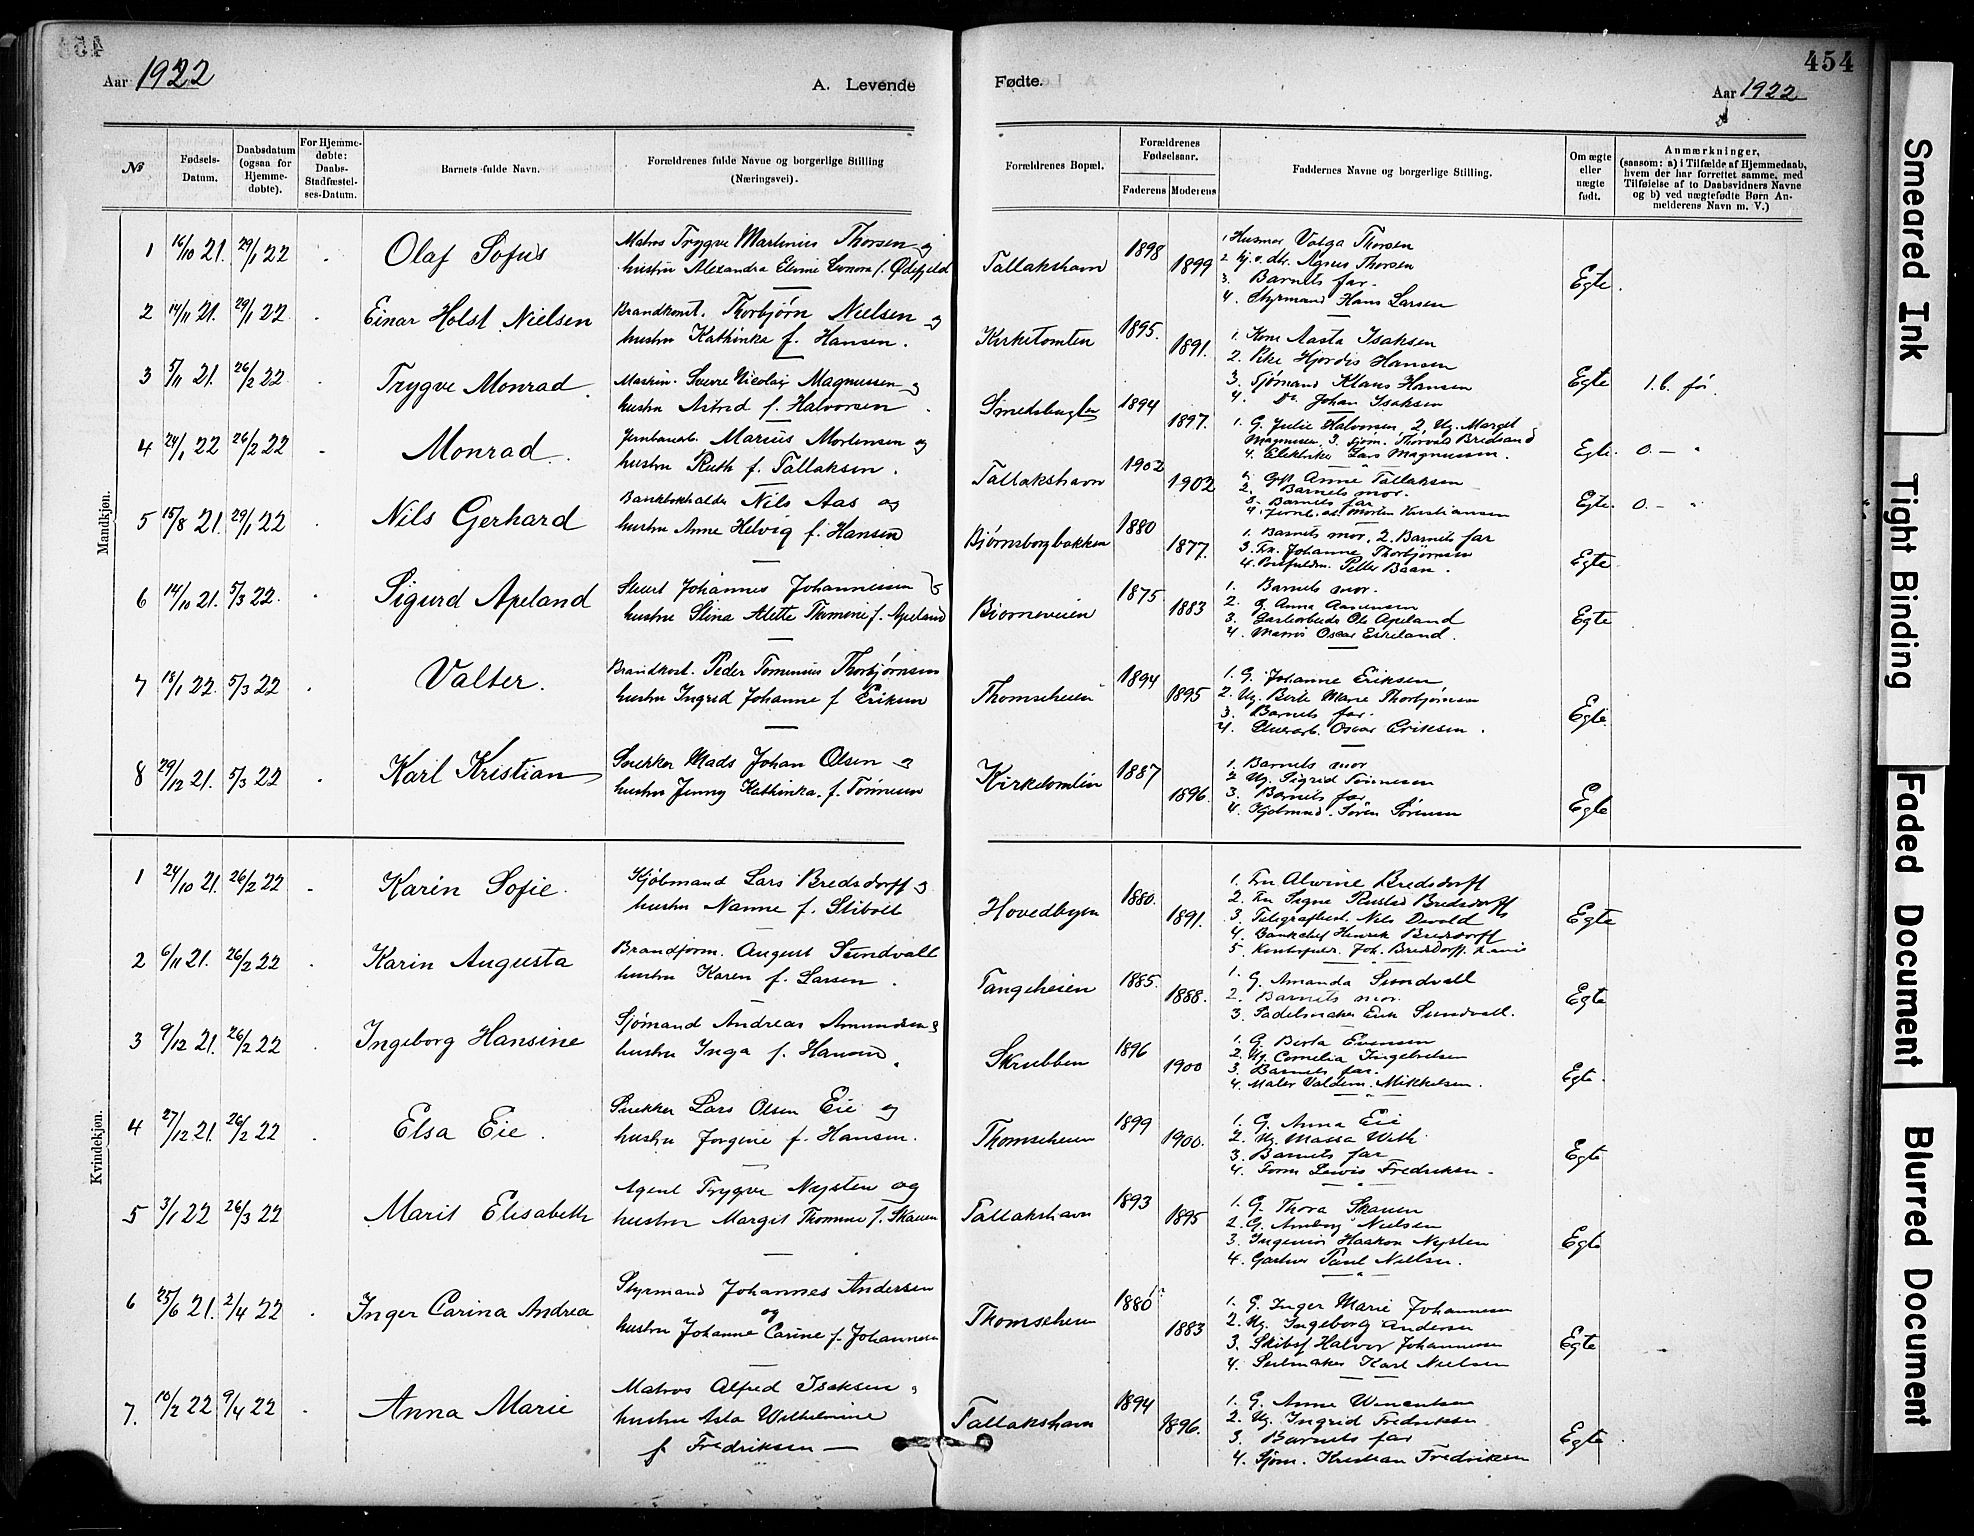 454
Aar 1922
A. Levende
Fødte.
Aar 1922
№
Fødsels-Datum.
Daabsdatum (ogsaa for Hjemme-døbte).
For Hjemme-døbte: Daabs-Stadfæstel-ses-Datum.
Barnets fulde Navn.
Forældrenes fulde Navne og borgerlige Stilling (Næringsvei).
Forældrenes Bopæl.
Forældrenes Fødselsaar.
Faderens
Moderens
Faddernes Navne og borgerlige Stilling.
Om ægte eller uægte født.
Anmærkninger, (saasom: a) i Tilfælde af Hjemmedaab, hvem der har forrettet samme, med Tilføielse af to Daabsvidners Navne og b) ved uægtefødte Børn An-melderens Navn m. V.)
Mandkjøn.
1 16/10 21. 29/1 22 Olaf Sofus
Matros Trygve Martinius Thorsen og
hustru Alexandra Elvine f. Ødefjeld
Tallakshavn 1898 1899
1 Husmor Valga Thorsen
2 Agnes Thorsen
3. Barnets far.
4. Styrmand Hans Larsen
Egte.
2 14/11 21. 29/1 22 Einar Holst Nielsen
Brandkonst. Thorbjørn Nielsen og
hustru Kathinka f. Hansen.
Kirketomten 1895. 1891.
1. Kone Aasta Isaksen
2. Pike Hjordis Hansen
3. Sjømand Klaus Hansen
4. Do Johan Isaksen
Egte 1. b. før
3 5/11 21. 26/2 22 Trygve Monrad
Maskin. Sverre Nicolay Magnussen og
hustru Astrid f. Halvorsen.
Smedsbugten 1894 1897.
1. G. Julie Halvorsen, 2. Ug. Margit
Magnussen, 3. Sjøm. Thorvald Bredsand
4. Elektriker Lars Magnussen.
Egte. 0. — "
4 24/1 22 26/2 22 Monrad.
Jernbanearb. Marius Mortensen og
hustru Ruth f. Tallaksen.
Tallakshavn 1902 1902
Gft Anne Tallaksen
2. Barnets mor.
3. Barnets far
4. Morten Kristiansen
Egte. 0. — "
5 15/8 21. 29/1 22 Nils Gerhard
Bankbokholder Nils Aas og
hustru Anne Helvig f. Hansen
Bjørnsborgbakken 1880 1877.
1. Barnets mor, 2. Barnets far
3. Frk. Johanne Thorbjørnsen
4. Petter Baan.
Egte
6 14/10 21. 5/3 22. Sigurd Apeland
Stuert Johannes Johannessen &
hustru Stina Alette Tomine f. Apeland
Bjorneveien 1875 1883
1. Barnets mor.
2. G. Anna Aanensen
3. Ole Apeland
4. Matros Oscar Eikeland.
Egte
7 18/1 22. 5/3 22 Valter.
Brandkonst. Peder Tominius Thorbjørnsen
hustru Ingrid Johanne f Eriksen
Thomseheien 1894 1895
1. G. Johanne Eriksen
2. Ug. Berte Marie Thorbjørnsen
3. Barnets far.
4. Oscar Eriksen.
Egte
8 29/12 21. 5/3 22 Karl Kristian
Snekker Mads Johan Olsen og
hustru Jenny Kathinka. f. Tønnesen
Kirketomten 1887 1896.
1. Barnets mor
2 Ug. Sigrid Tønnesen
3. Barnets far
4. Kjøbmand. Søren Sørensen
Egte
Kvindekjøn.
1 24/10 21. 26/2 22 Karin Sofie.
Kjøbmand Lars Bredsdorff og
hustru Nanne f. Stibolt
Hovedbyen 1880. 1891.
1. Fru Alwine Bredsdorff
2. Fru Signe Rustad Bredsdorff
3. Telegrafbest. Nils Devold
4. Bankchef Henrik Bredsdorff
5. Joh. Bredsdorff
Egte
2 6/11 21. 26/2 22 Karin Augusta
Brandform. August Sundvall
hustru Karen f. Larsen.
Tangeheien 1885. 1888.
1. G. Amanda Sundvall
2. Barnets mor.
3. Sadelmaker Erik Sundvall.
Egte
3 9/12 21. 26/2 22 Ingeborg Hansine
Sjømand Andreas Amundsen &
hustru Inga f. Hansen
Skrubben 1896 1900
1. G. Berta Evensen
2. Ug. Cornelia Ingebretsen
3. Barnets far.
4. Maler Valdem. Mikkelsen.
Egte.
4 27/12 21. 26/2 22 Elsa Eie.
Snekker Lars Olsen Eie og
hustru Jorgine f. Hansen.
Thomseheien 1899 1900.
1. G. Anna Eie
2. Ug. Massa With
3. Barnets far
4. Form Lewis Fredriksen.
Egte
5 3/1 22 26/3 22 Marit Elisabeth
Agent Trygve Nysten og
hustru Margit Thomine f. Skauen
Tallakshavn 1893 1895
1. G. Thora Skauen
2. G. Nielsen
3. Ingeniør Haakon Nysten
4. Gartner Paul Nielsen.
Egte
6 25/6 21. 2/4 22 Inger Carina Andrea
Styrmand Johannes Andersen
og
hustru Johanne Carine f. Johannesen
Thomseheien 1880 1883
1. G. Inger Marie Johannesen
2. Ug. Ingeborg Andersen
3. Skibsf Halvor Johannessen
4. Seilmaker Karl Nielsen
Egte
7. 10/2 22 9/4 22 Anna Marie
Matros Alfred Isaksen &
hustru Asta Wilhelmine
f Fredriksen —
Tallakshavn 1894 1896.
1. G. Anne Wincentsen
2. Ug. Ingrid Fredriksen
3. Barnets far
4. Sjøm. Kristian Fredriksen
Egte
Smeared Ink
Tight Binding
Faded Document
Blurred Document